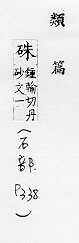 類篇
硃
鍾輸切丹
砂文一
(石部. P338)